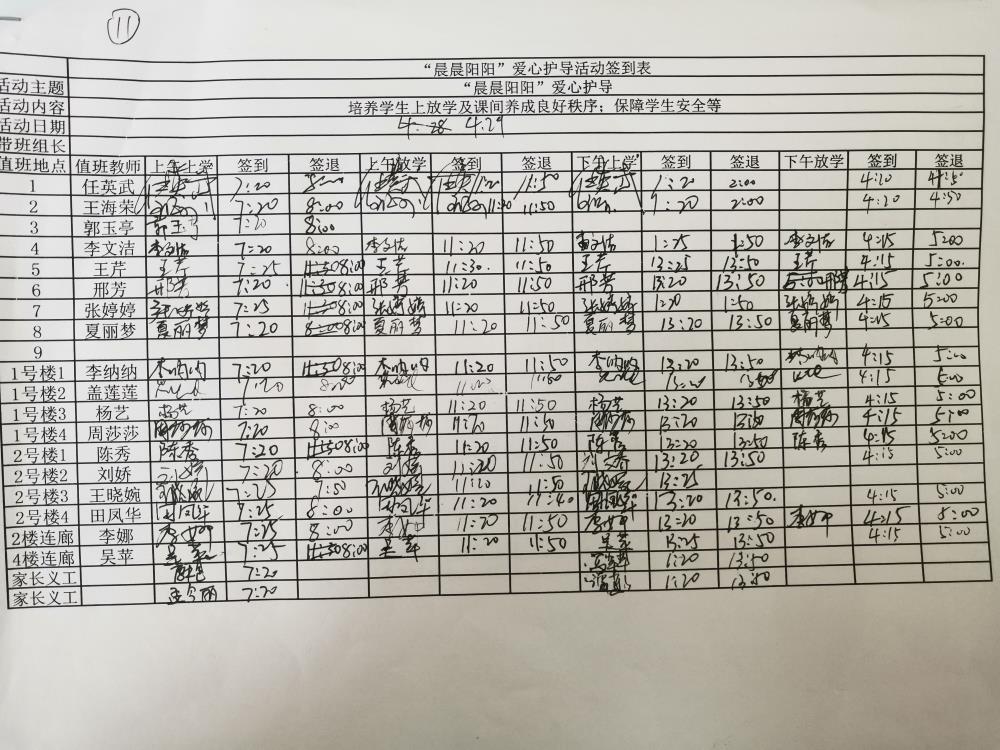 11
“晨晨阳阳”爱心护导活动签到表
活动主题 “晨晨阳阳”爱心护导
活动内容 培养学生上放学及课间养成良好秩序；保障学生安全等
活动日期 4.28 4.29
带班组长
值班地点 值班教师 上午上学 签到 签退 上午放学 签到 签退 下午上学 签到 签退 下午放学 签到 签退
1 任英武 7:20 8:00 11:50 1:20 2:00 4:20 4:50
2 王海荣 7:20 8:00 11:20 11:50 1:20 2:00 4:20 4:50
3 郭玉亭 郭玉亭 7:20 8:00
4 李文洁 李文洁 7:20 8:00 李文洁 11:20 11:50 李文洁 1:25 1:50 李文洁 4:15 5:00
5 王芹 王芹 7:25 8:00 王芹 11:30 11:50 王芹 13:25 13:50 王芹 4:15 5:00
6 邢芳 邢芳 7:20 8:00 邢芳 11:20 11:50 邢芳 13:20 13:50 邢芳 4:15 5:00
7 张婷婷 张婷婷 7:25 8:00 张婷婷 11:20 11:50 张婷婷 1:20 1:50 张婷婷 4:15 5:00
8 夏丽梦 夏丽梦 7:20 8:00 夏丽梦 11:20 11:50 夏丽梦 13:20 13:50 夏丽梦 4:15 5:00
9
1号楼1 李纳纳 李纳纳 7:20 8:00 李纳纳 11:20 11:50 李纳纳 13:20 13:50 4:15 5:00
1号楼2 盖莲莲 7:20 8:00 4:15 5:00
1号楼3 杨艺 杨艺 7:20 8:00 杨艺 11:20 11:50 杨艺 13:20 13:50 杨艺 4:15 5:00
1号楼4 周莎莎 周莎莎 7:20 8:00 周莎莎 11:20 11:50 周莎莎 13:20 13:50 周莎莎 4:15 5:00
2号楼1 陈秀 陈秀 7:20 8:00 陈秀 11:20 11:50 陈秀 13:20 13:50 陈秀 4:15 5:00
2号楼2 刘娇 刘娇 7:20 8:00 刘娇 11:20 11:50 刘娇 13:20 13:50 4:15 5:00
2号楼3 王晓婉 7:25 7:50 11:20 11:50 13:25
2号楼4 田凤华 田凤华 7:25 8:00 田凤华 11:20 11:40 田凤华 13:20 13:50 4:15 5:00
2楼连廊 李娜 李娜 7:25 8:00 李娜 11:20 11:50 李娜 13:20 13:50 李娜 4:15 5:00
4楼连廊 吴苹 吴苹 7:25 8:00 吴苹 11:20 11:50 吴苹 13:25 13:50 4:15 5:00
家长义工 7:20 1:20 13:50
家长义工 孟令丽 7:20 1:20 13:50